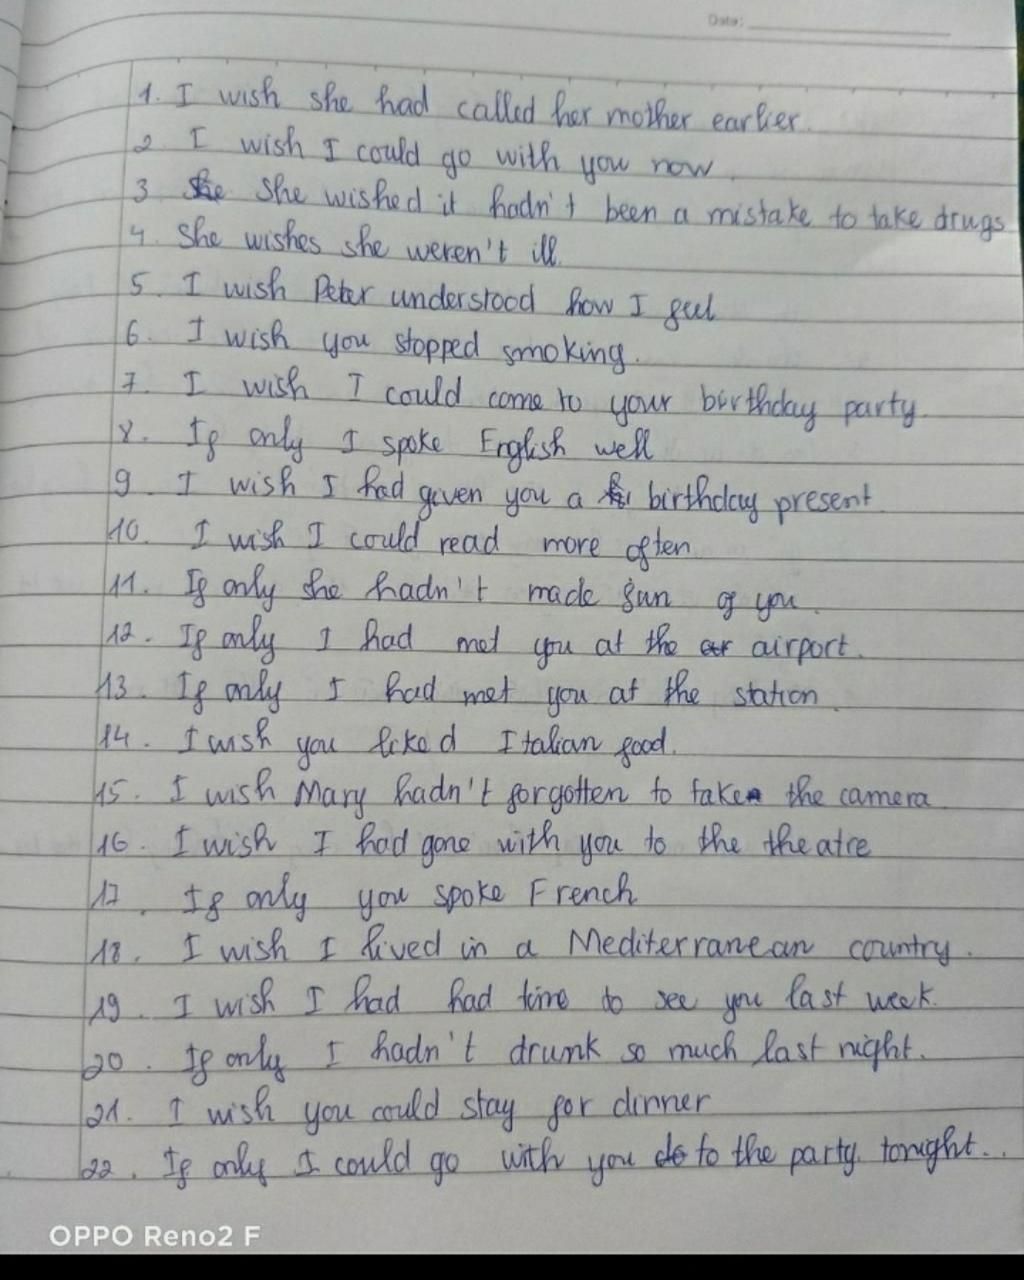 Date:
1. I wish she had called her mother earlier.
2 I wish I could go with you now.
3 She wished it hadn't been a mistake to take drugs
4. She wishes she weren't ill.
5. I wish Peter understood how I feel
6. I wish you stopped smoking.
7. I wish I could come to your birthday party.
8. If only I spoke English well
9. I wish I had given you a birthday present
10. I wish I could read more often
11. If only she hadn't made fun of you.
12. If only I had met you at the airport.
13. If only I had met you at the station.
14. I wish you liked Italian food.
15. I wish Mary hadn't forgotten to take the camera
16. I wish I had gone with you to the theatre
17. If only you spoke French
18. I wish I lived in a Mediterranean country.
19. I wish I had had time to see you last week.
20. If only I hadn't drunk so much last night.
21. I wish you could stay for dinner
22. If only I could go with you to the party tonight...
OPPO Reno2 F